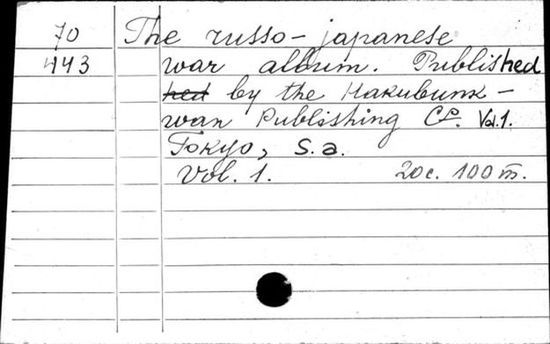 70 The russo-japanese
443 war album. Published
hed by the Hakubunk-
wan Publishing Co. Vol.1.
Tokyo, s.a.
Vol. 1. 20c. 100 m.